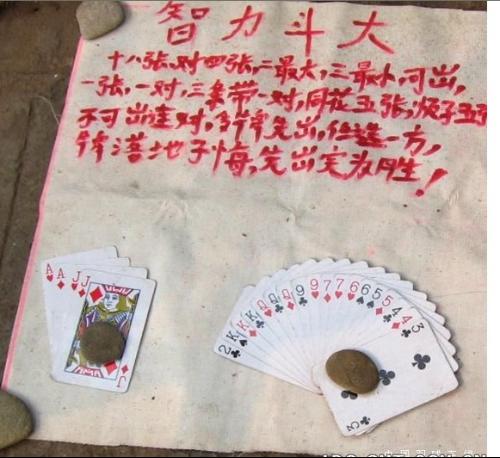 智力斗大
十八张对四张,二最大,三最小,可出,
一张,一对,三条带一对,同花五张,
不可出连对,多牌先出,任选一方,
牌落地子悔,先出完为胜!
A A J J
J
2 K K K Q Q Q 9 9 7 7 6 6 5 5 4 4 3
3